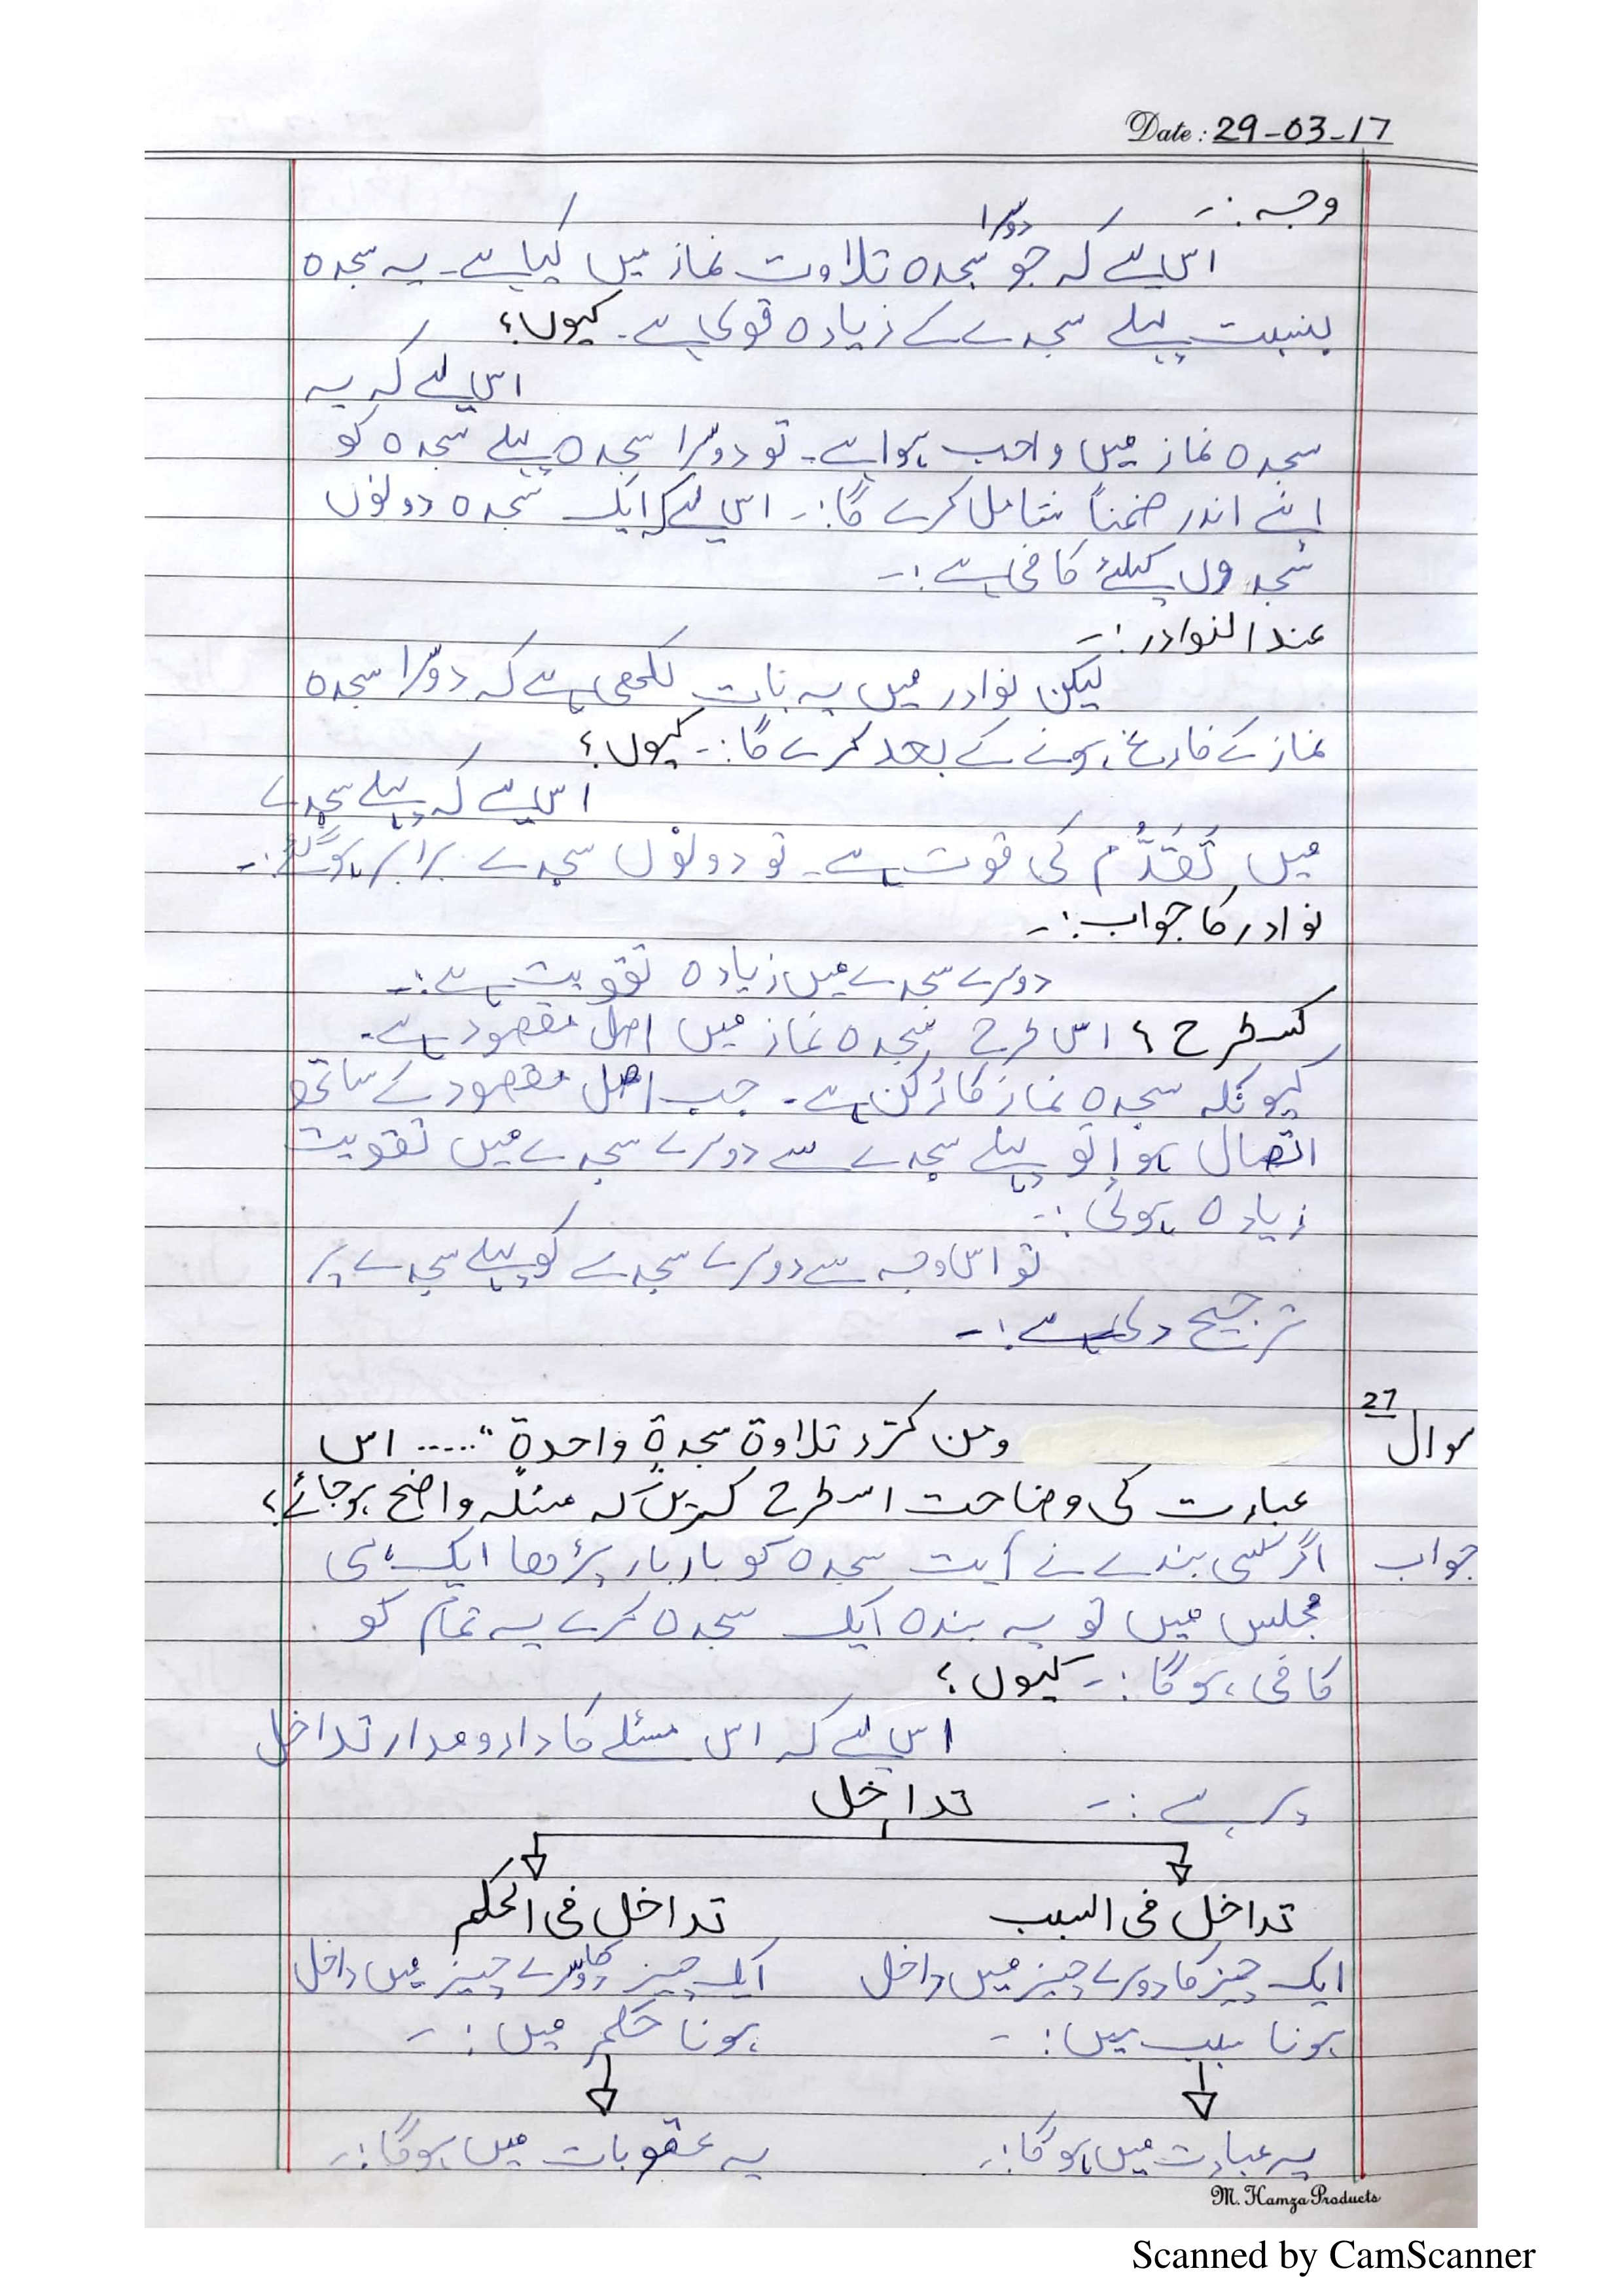 Date: 29-03-17
وجہ :-
اس لیے کہ جو دوسرا سجدہ تلاوت نماز میں کیا ہے۔ یہ سجدہ
بنسبت پہلے سجدے کے زیادہ قوی ہے۔ کیوں؟
اس لئے کہ یہ
سجدہ نماز میں واجب ہوا ہے۔ تو دوسرا سجدہ پہلے سجدہ کو
اپنے اندر ضمناً شامل کرے گا :- اس لئے کہ ایک سجدہ دونوں
سجدوں کیلئے کافی ہے :-
عند النوادر :-
لیکن نوادر میں یہ بات لکھی ہے کہ دوسرا سجدہ
نماز کے فارغ ہونے کے بعد کرے گا :- کیوں؟
اس لیے کہ پہلے سجدے
میں تَقَدُّم کی قوت ہے۔ تو دونوں سجدے برابر ہوگئے :-
نوادر کا جواب :-
دوسرے سجدے میں زیادہ تقویت ہے :-
کس طرح ؟ اس طرح سجدہ نماز میں اصل مقصود ہے۔
کیونکہ سجدہ نماز کا رُکن ہے۔ جب اصل مقصود کے ساتھ
اتصال ہوا تو پہلے سجدے سے دوسرے سجدے میں تقویت
زیادہ ہوئی :-
تو اس وجہ سے دوسرے سجدے کو پہلے سجدے پر
ترجیح دی ہے :-
سوال 27 ومن کرّر تلاوۃ سجدۃٍ واحدۃٍ " ..... اس
عبارت کی وضاحت اس طرح کریں کہ مسئلہ واضح ہوجائے؟
جواب اگر کسی بندے نے آیت سجدہ کو بار بار پڑھا ایک ہی
مجلس میں تو یہ بندہ ایک سجدہ کرے یہ تمام کو
کافی ہوگا :- کیوں؟
اس لئے کہ اس مسئلے کا دارومدار تداخل
پر ہے :-
تداخل
تداخل فی السبب تداخل فی الحکم
ایک چیز کا دوسرے چیز میں داخل ایک چیز کا دوسرے چیز میں داخل
ہونا سبب میں :- ہونا حکم میں :-
یہ عبادت میں ہوگا :- یہ عقوبات میں ہوگا :-
M. Hamza Products
Scanned by CamScanner